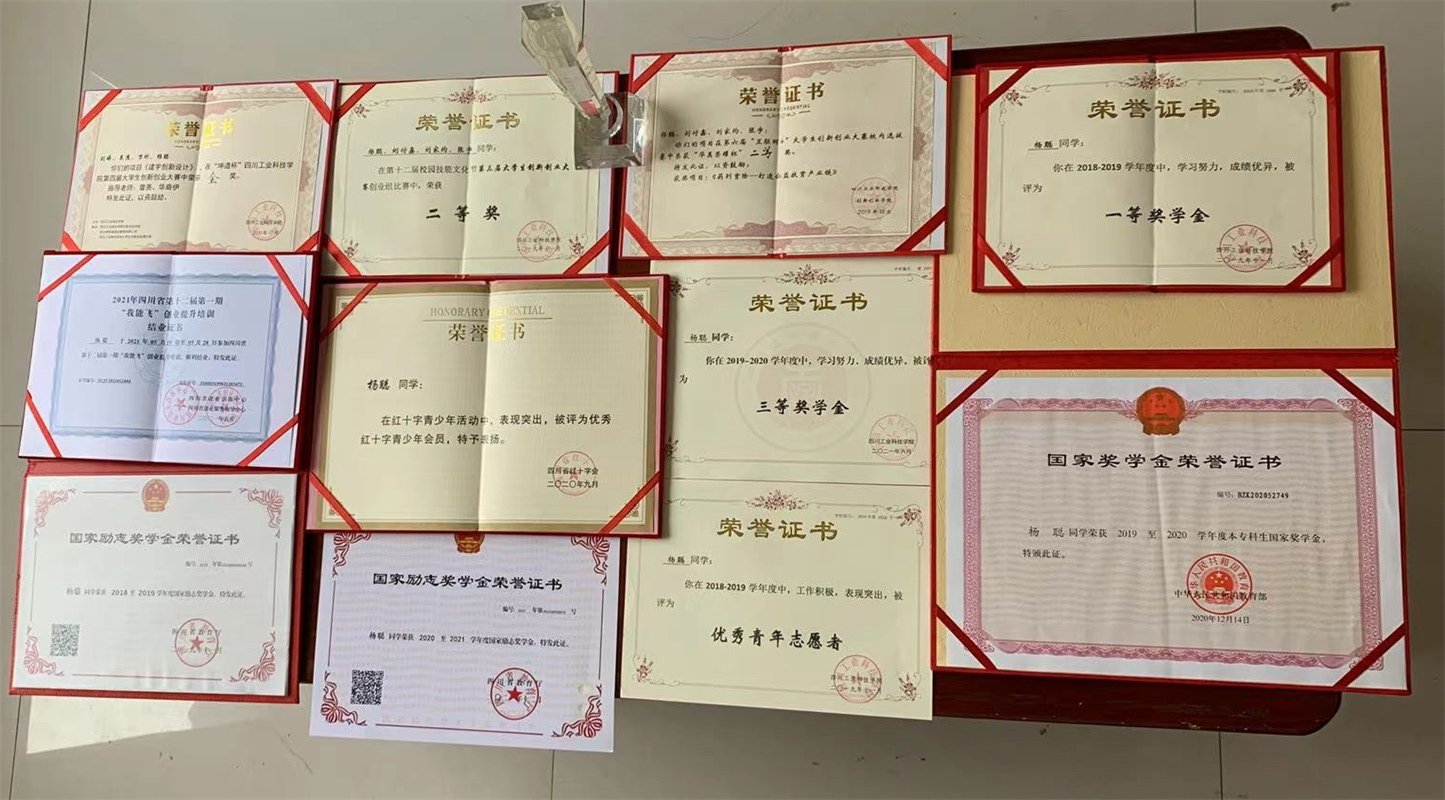 荣誉证书
你们的项目《建宇创新设计》,在"坤道杯"四川工业科技学
院第四届大学生创新创业大赛中荣获 金 奖。
特发此证,以资鼓励。
荣誉证书
杨聪、刘付鑫、刘家均、张宇 同学:
在第十二届校园技能文化节第三届大学生创新创业大
赛创业组比赛中,荣获
二等奖
四川工业科技学院
二〇一九年十一月
荣誉证书
HONORARY CREDENTIAL
杨聪、刘付鑫、刘家均、张宇:
你们的项目在第六届"互联网+"大学生创新创业大赛校内选拔
赛中荣获"华夏荣耀杯" 二等 奖。
特发此证,以资鼓励。
四川工业科技学院
创新创业学院
荣誉证书
杨聪 同学:
你在 2018-2019 学年度中,学习努力,成绩优异,被
评为
一等奖学金
四川工业科技学院
二〇一九年十一月
2021年四川省第十二届第一期
"我能飞"创业提升培训
结业证书
HONORARY CREDENTIAL
荣誉证书
杨聪 同学:
在红十字青少年活动中,表现突出,被评为优秀
红十字青少年会员,特予表扬。
四川省红十字会
二〇二〇年九月
荣誉证书
杨聪 同学:
你在 2019-2020 学年度中,学习努力,成绩优异,被评
为
三等奖学金
四川工业科技学院
二〇二一年六月
国家奖学金荣誉证书
编号:BZK202052749
杨 聪 同学荣获 2019 至 2020 学年度本专科生国家奖学金,
特颁此证。
中华人民共和国教育部
2020年12月14日
国家励志奖学金荣誉证书
杨聪 同学荣获 2018 至 2019 学年度国家励志奖学金,特发此证。
国家励志奖学金荣誉证书
杨聪 同学荣获 2020 至 2021 学年度国家励志奖学金,特发此证。
四川省教育厅
荣誉证书
杨聪 同学:
你在 2018-2019 学年度中,工作积极,表现突出,被
评为
优秀青年志愿者
四川工业科技学院